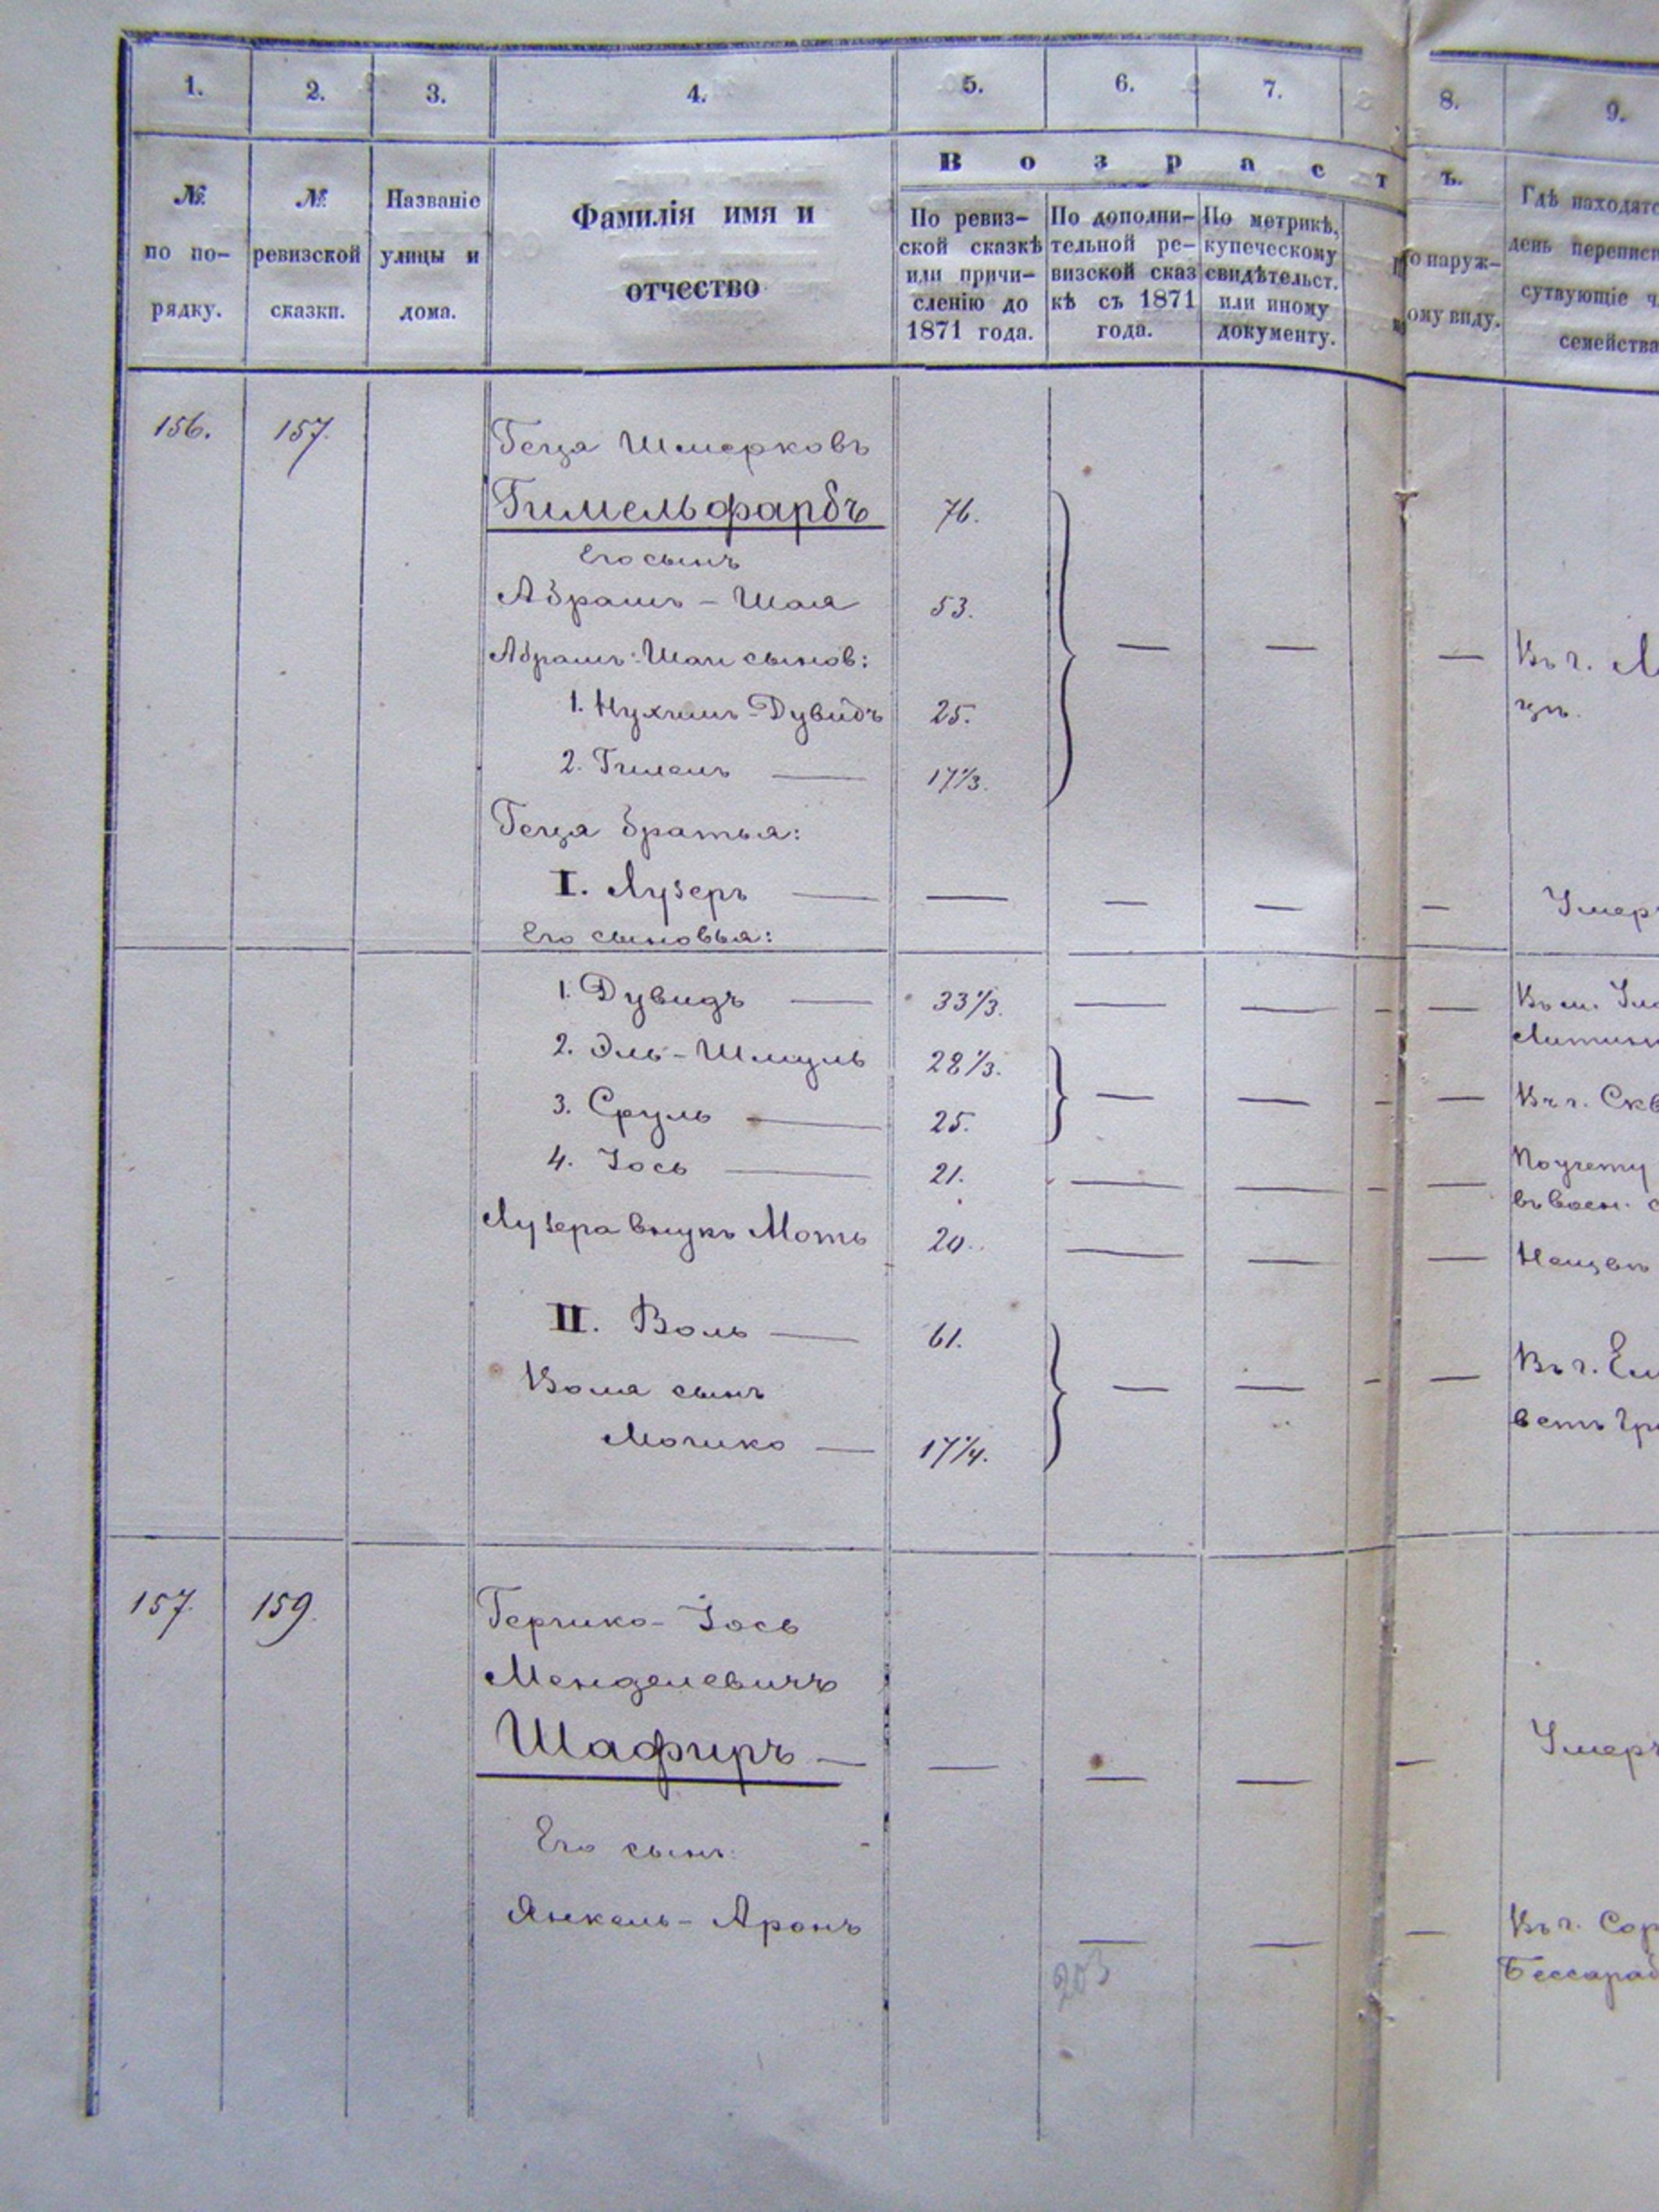 1. 2. 3. 4. 5. 6. 7. 8. 9.
В о з р а с т ъ.
№ по по-
рядку.
№ ревизской
сказки.
Названіе
улицы и
дома.
Фамилія имя и
отчество
По ревиз-
ской сказкѣ
или причи-
сленію до
1871 года.
По дополни-
тельной ре-
визской сказ
кѣ съ 1871
года.
По метрикѣ,
купеческому
свидѣтельст.
или иному
документу.
о наруж-
ому виду.
Гдѣ находятс
день переписи
сутвующіе ч
семейства
156. 157. Геця Шмерковъ
Гимельфарбъ 76.
Его сынъ
Абрамъ - Шая 53.
— — — Въ г.
Абрамъ-Шаи сынов:
1. Нухимъ-Дувидъ 25.
2. Гилель — 17 1/3.
Геця братья:
I. Лузеръ — — — — — Умеръ
Его сыновья:
1. Дувидъ — 33 1/3. — — — — Въ м.
2. Эль - Шмуль 28 1/3.
— — — — Въ г. Скв
3. Сруль — 25.
4. Іось — 21. — — — — По учету
въ воен. с
Лузера внукъ Моть 20. — — —
II. Воль — 61.
— — — — Въ г. Ел
Воля сынъ
ветъ гр
Мошко — 17 1/4.
157. 159. Гершко - Іось
Менделевичъ
Шафиръ — — — — — Умеръ
Его сынъ:
Янкель - Аронъ — — — Въ г. Сор
Бессараб
203